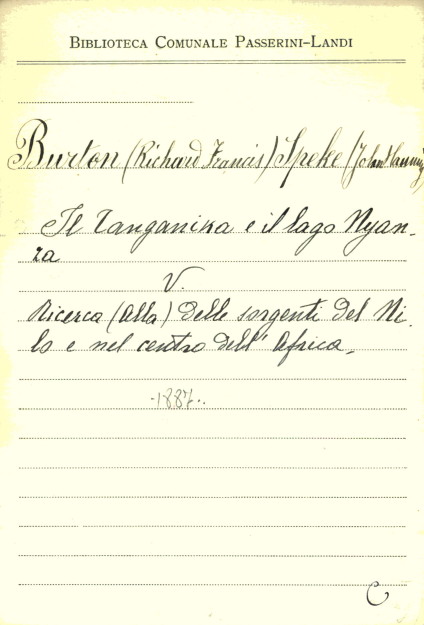 BIBLIOTECA COMUNALE PASSERINI-LANDI
Burton (Richard Francis) Speke (John Hanning)
Il Tanganika e il lago Nyan-
za
V.
Ricerca (Alla) delle sorgenti del Ni-
lo e nel centro dell' Africa.
-1887..
C